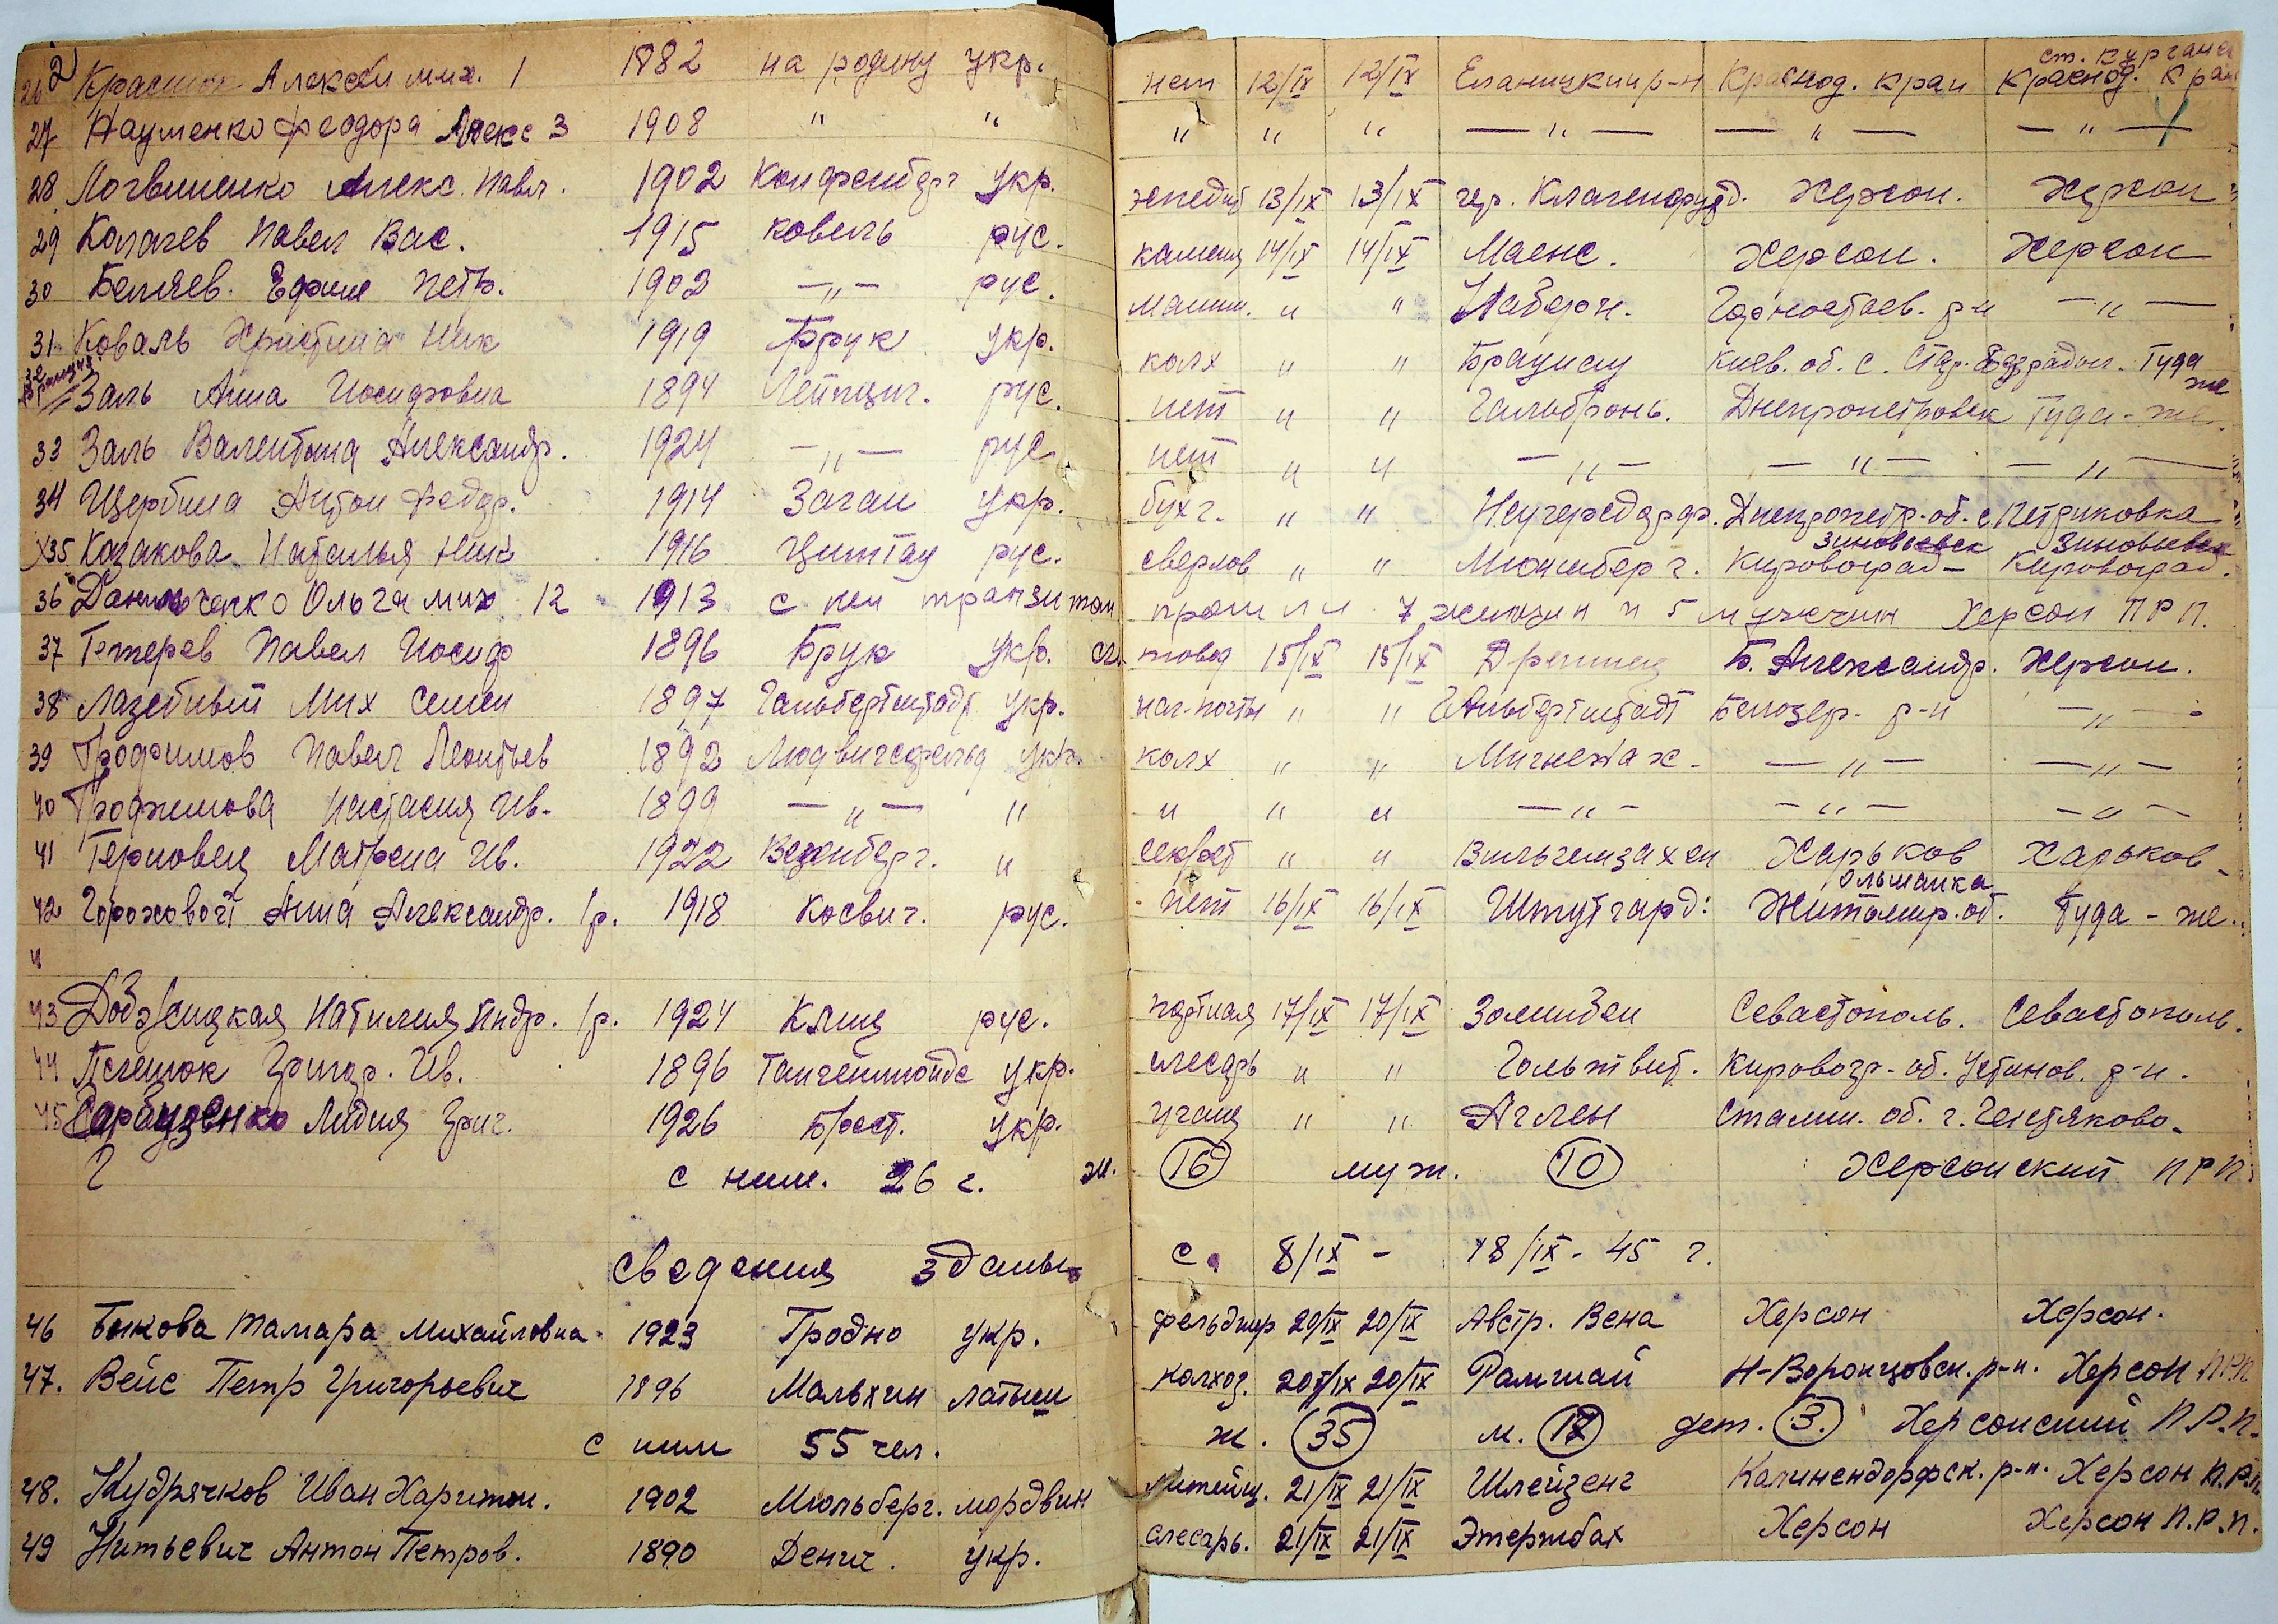 26 Алексей мих. 1 1882 на родину укр. нет 12/IX 12/IX Еланицкий р-н Краснод. край ст. Краснод. край
27 Науменко Феодора Алекс 3 1908 " " " " " — " — — " — — " —
28 Логвиненко Алекс. Павл. 1902 укр. 13/IX 13/IX гер. Клагенфурд. Херсон. Херсон
29 Колачев Павел Вас. 1915 Ковель рус. 14/IX 14/IX Маенс. Херсон. Херсон
30 Беляев. Ефим Петр. 1902 — " — рус. машин. " " Горностаев. р-н — " —
31 Коваль Христина Ник 1919 Брук укр. колх " " Киев. об. с. Туда же
32 Заль Анна Иосифовна 1894 Лейпциг. рус. нет " " Гальбронь. Днепропетровск Туда-же.
33 Заль Валентина Александр. 1924 — " — рус нет " " — " — — " — — " —
34 Щербина Антон Федор. 1914 Заган укр. бухг. " " Днепропетр. об. с. Петриковка
35 Казакова Наталья Ник 1916 Циттау рус. сверлов " " Мюншберг. Зиновьевск Кировоград- Зиновьевск Кировоград.
36 Данильченко Ольга мих 12 1913 с ней транзитом прошли 7 женщин и 5 мужчин Херсон ПРП.
37 Тетерев Павел Иосиф 1896 Брук укр. 15/IX 15/IX Б. Александр. Херсон.
38 Лазебный Мих Семен 1897 Гальбертштадт укр. нач-почты " " Гальбертштадт Белозер. р-н — " —
39 Трофимов Павел Леонтьев 1892 Людвигсфельд укр. колх " " — " — — " —
40 Трофимова Настасия Ив. 1899 — " — " " " " — " — — " — — " —
41 Терновец Матрена Ив. 1922 " секрет " " Вильгемзахен Харьков Харьков
42 Анна Александр. 1р. 1918 Косвиг. рус. нет 16/IX 16/IX Штутгард: Ольшанка Житомир. об. Туда-же.
43 Наталия Андр. 1р. 1924 рус. 17/IX 17/IX Севастополь. Севастополь.
44 Григор. Ив. 1896 Тангенмюнде укр. слесарь " " Гольтвит. Кировогр. об. Устинов. р-н.
45 Лидия Григ. 1926 Брест. укр. учащ " " Аглен Сталин. об. г.
с ним. 26 г. ж. 16 муж. 10 Херсонский ПРП.
Сведения зданы с. 8/IX - 18/IX - 45 г.
46 Быкова Тамара Михайловна. 1923 Гродно укр. фельдшер 20/IX 20/IX Австр. Вена Херсон Херсон.
47. Вейс Петр Григорьевич 1896 Мальхин латыш колхоз. 20/IX 20/IX Рамшай Н-Воронцовск. р-н. Херсон П.Р.П.
с ним 55 чел. ж. 35 м. 17 дет. 3. Херсонский П.Р.П.
48. Кудрячков Иван Харитон. 1902 Мюльберг. мордвин литейщ. 21/IX 21/IX Шлейзенг Калинендорфск. р-н. Херсон П.Р.П.
49 Нитьевич Антон Петров. 1890 Дениж. укр. слесарь. 21/IX 21/IX Этержбах Херсон Херсон П.Р.П.